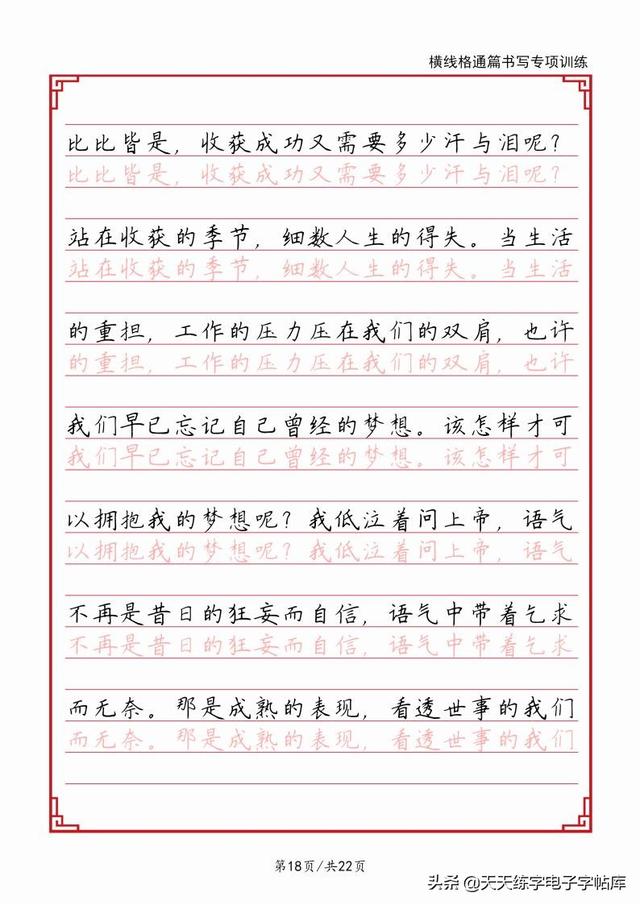 横线格通篇书写专项训练
比比皆是，收获成功又需要多少汗与泪呢？
比比皆是，收获成功又需要多少汗与泪呢？
站在收获的季节，细数人生的得失。当生活
站在收获的季节，细数人生的得失。当生活
的重担，工作的压力压在我们的双肩，也许
的重担，工作的压力压在我们的双肩，也许
我们早已忘记自己曾经的梦想。该怎样才可
我们早已忘记自己曾经的梦想。该怎样才可
以拥抱我的梦想呢？我低泣着问上帝，语气
以拥抱我的梦想呢？我低泣着问上帝，语气
不再是昔日的狂妄而自信，语气中带着乞求
不再是昔日的狂妄而自信，语气中带着乞求
而无奈。那是成熟的表现，看透世事的我们
而无奈。那是成熟的表现，看透世事的我们
第18页/共22页
头条 @天天练字电子字帖库